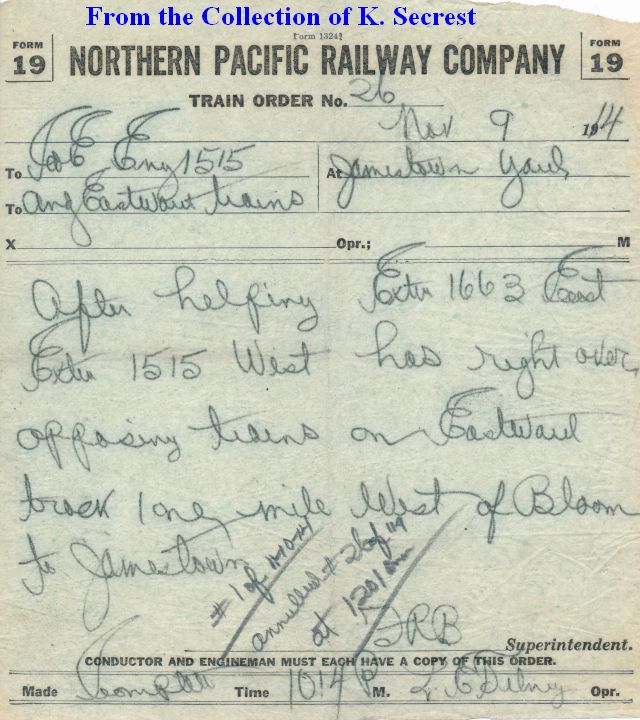 From the Collection of K. Secrest
Form 1324½
FORM 19
NORTHERN PACIFIC RAILWAY COMPANY
FORM 19
TRAIN ORDER No. 26
Nov 9 1944
To C&E Eng 1515 At Jamestown Yard
To And Eastward trains
X Opr.; M
After helping Extra 1663 East
Extra 1515 West has right over
opposing trains on Eastward
track 1 one mile West of Bloom
to Jamestown
# 1 of
annulled # 26 of
at 1201 am
FRB
Superintendent.
CONDUCTOR AND ENGINEMAN MUST EACH HAVE A COPY OF THIS ORDER.
Made Complete Time 1014 P M. Opr.